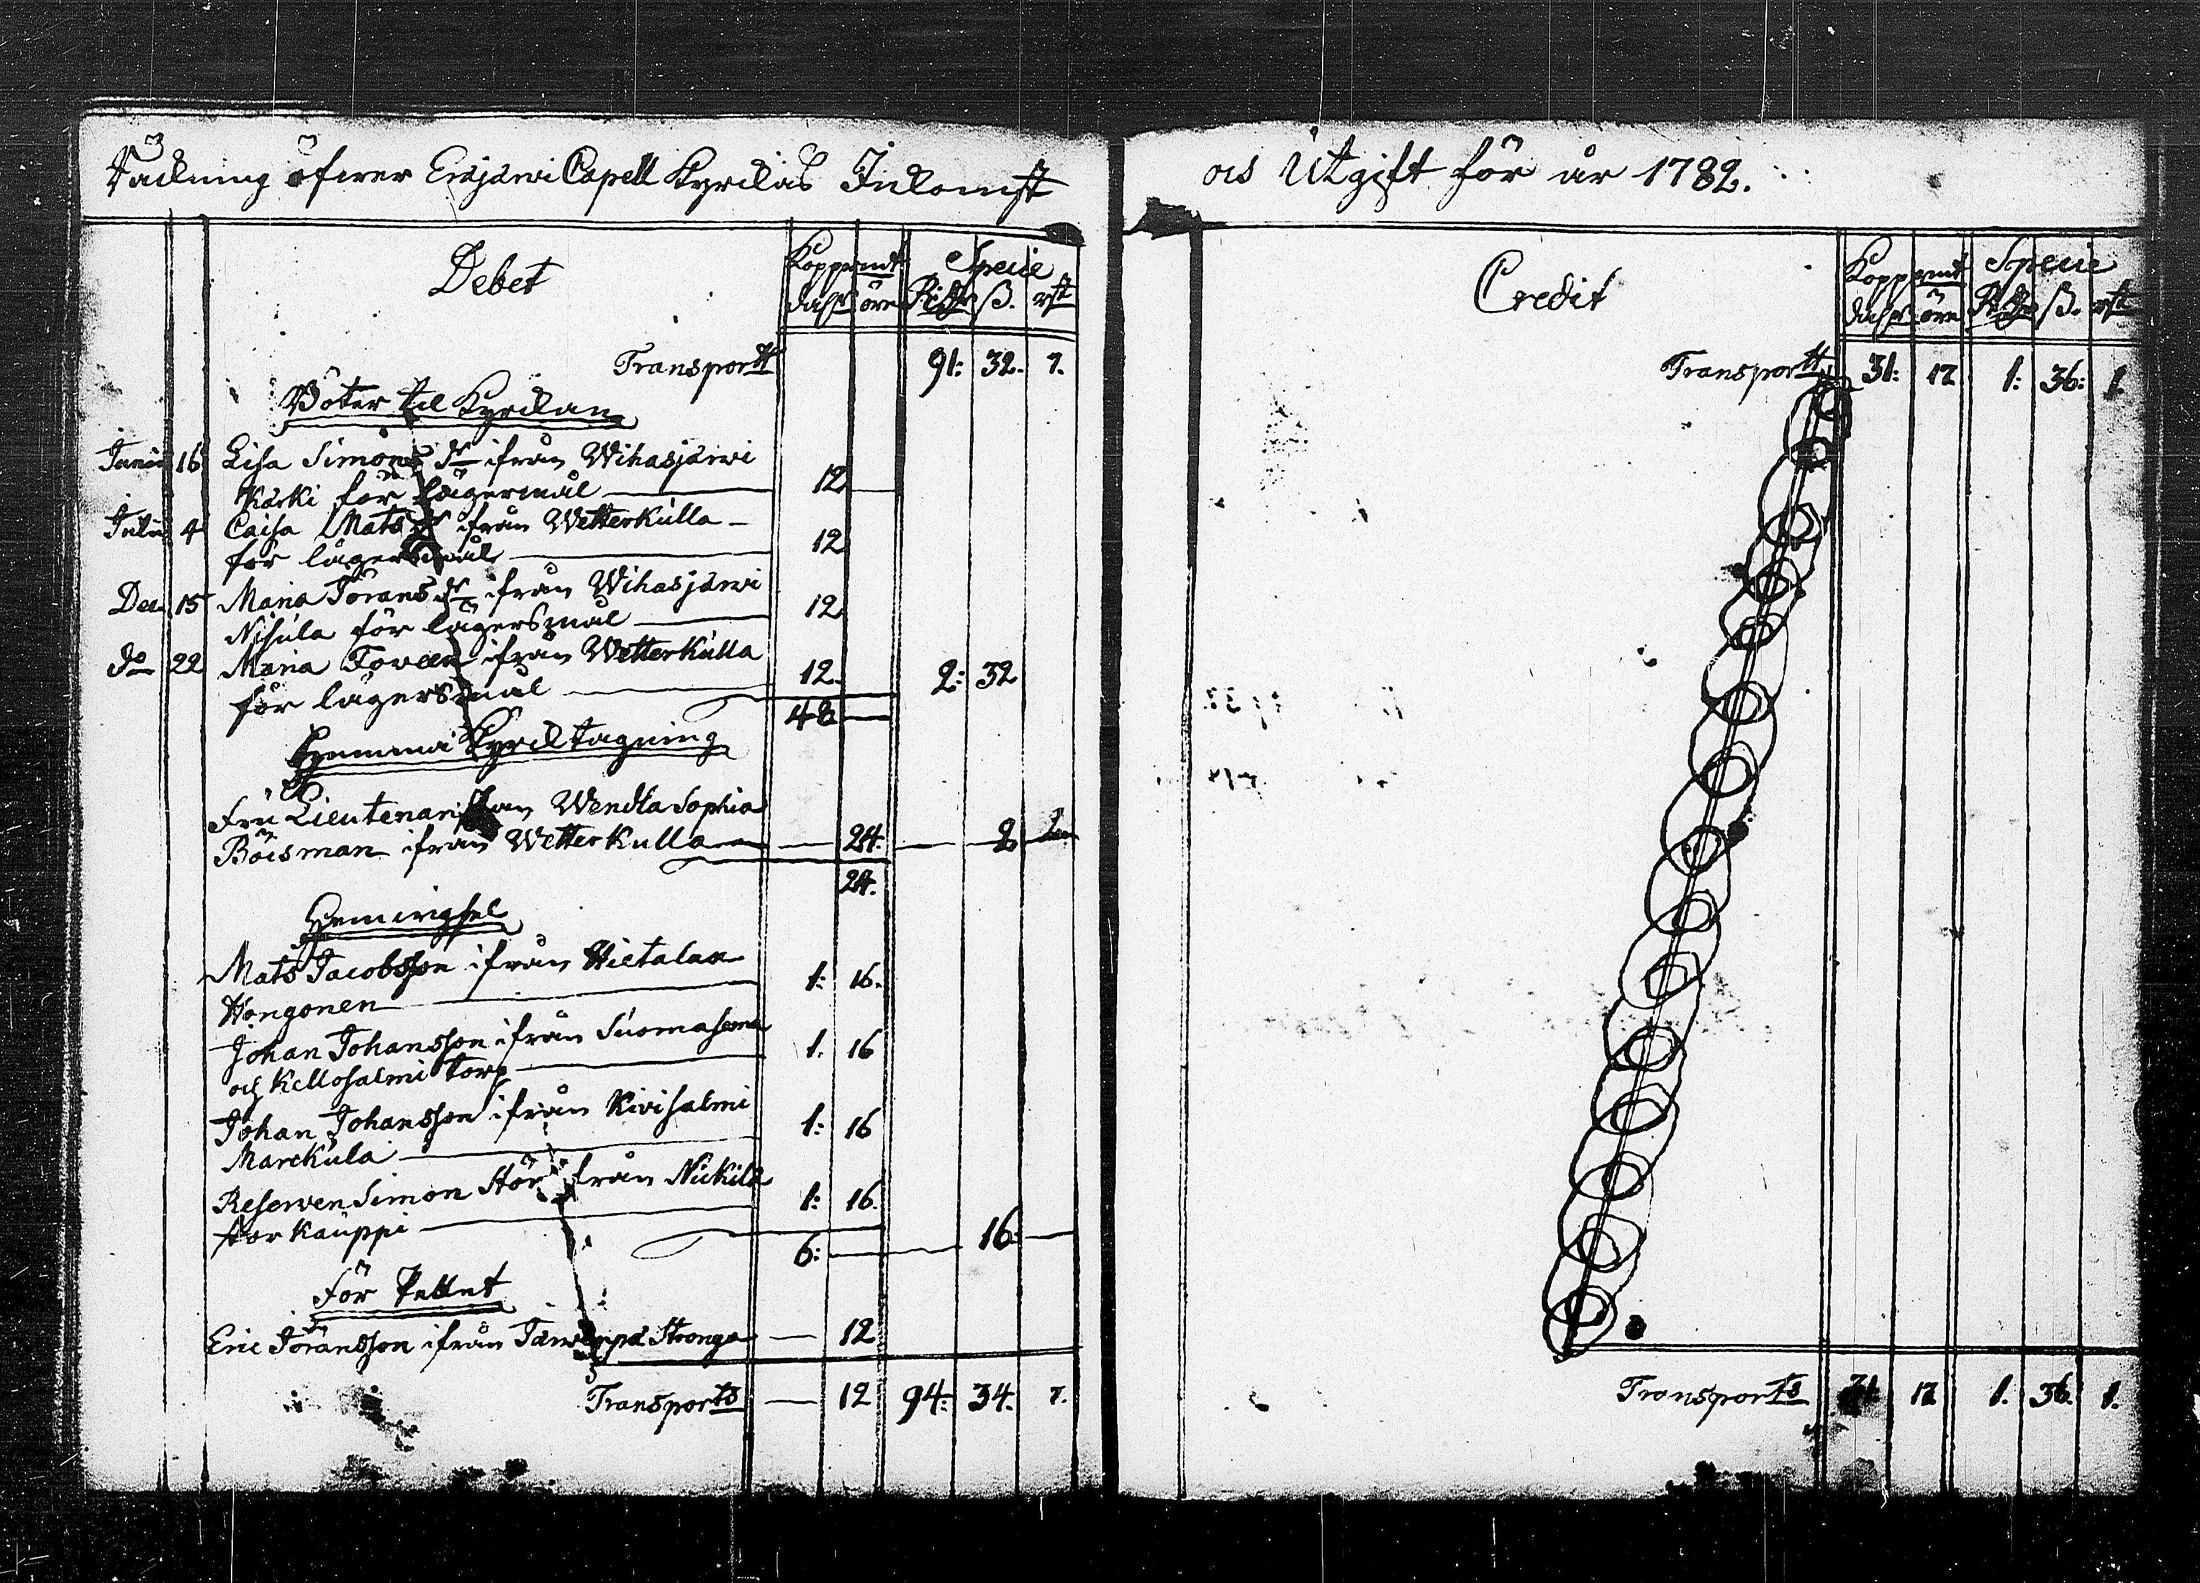 Räckning öfwer Eräjärwi Capell Kyrckas Inkomst
Debet
Kopparmt Specie
dalr öre Rdlr ß. rst
Transportt 91: 32. 7.
Böter til Kyrckan
Junii 16 Lisa Simons dr ifrån Wihasjärwi
Kärki för lägermål 12 —
Julii 4 Caisa Mats dr ifrån Wetterkulla
för lägersmål 12
Dec 15 Maria Jörans dr ifrån Wihasjärwi
Nisula för lägersmål 12
do 22 Maria ifrån Wetterkulla
för lägersmål 12. 2: 32
48 —
Hemma Kyrcktagning
Fru Lieutenantskan Wendla Sophia
Böisman ifrån Wetterkulla — 24. — 2
24.
Hemwigsel
Mats Jacobsson ifrån Hietalax
Hongonen 1: 16.
Johan Johansson ifrån Suomasema
och Kellosalmi torp 1. 16
Johan Johansson ifrån Kivisalmi
Marckula 1: 16
Reserven Simon Stör ifrån Nickilä
Kauppi 1: 16.
6: — 16: —
För Pellet
Eric Jöransson ifrån Järwenpä Stronga — 12
Transports — 12 94: 34. 7.
och Utgift för år 1782.
Credit
Kopparmt Specie
dalr öre Rdlr ß. rst
Transportt 31: 17 1: 36: 1.
Transports 31 17 1. 36. 1.